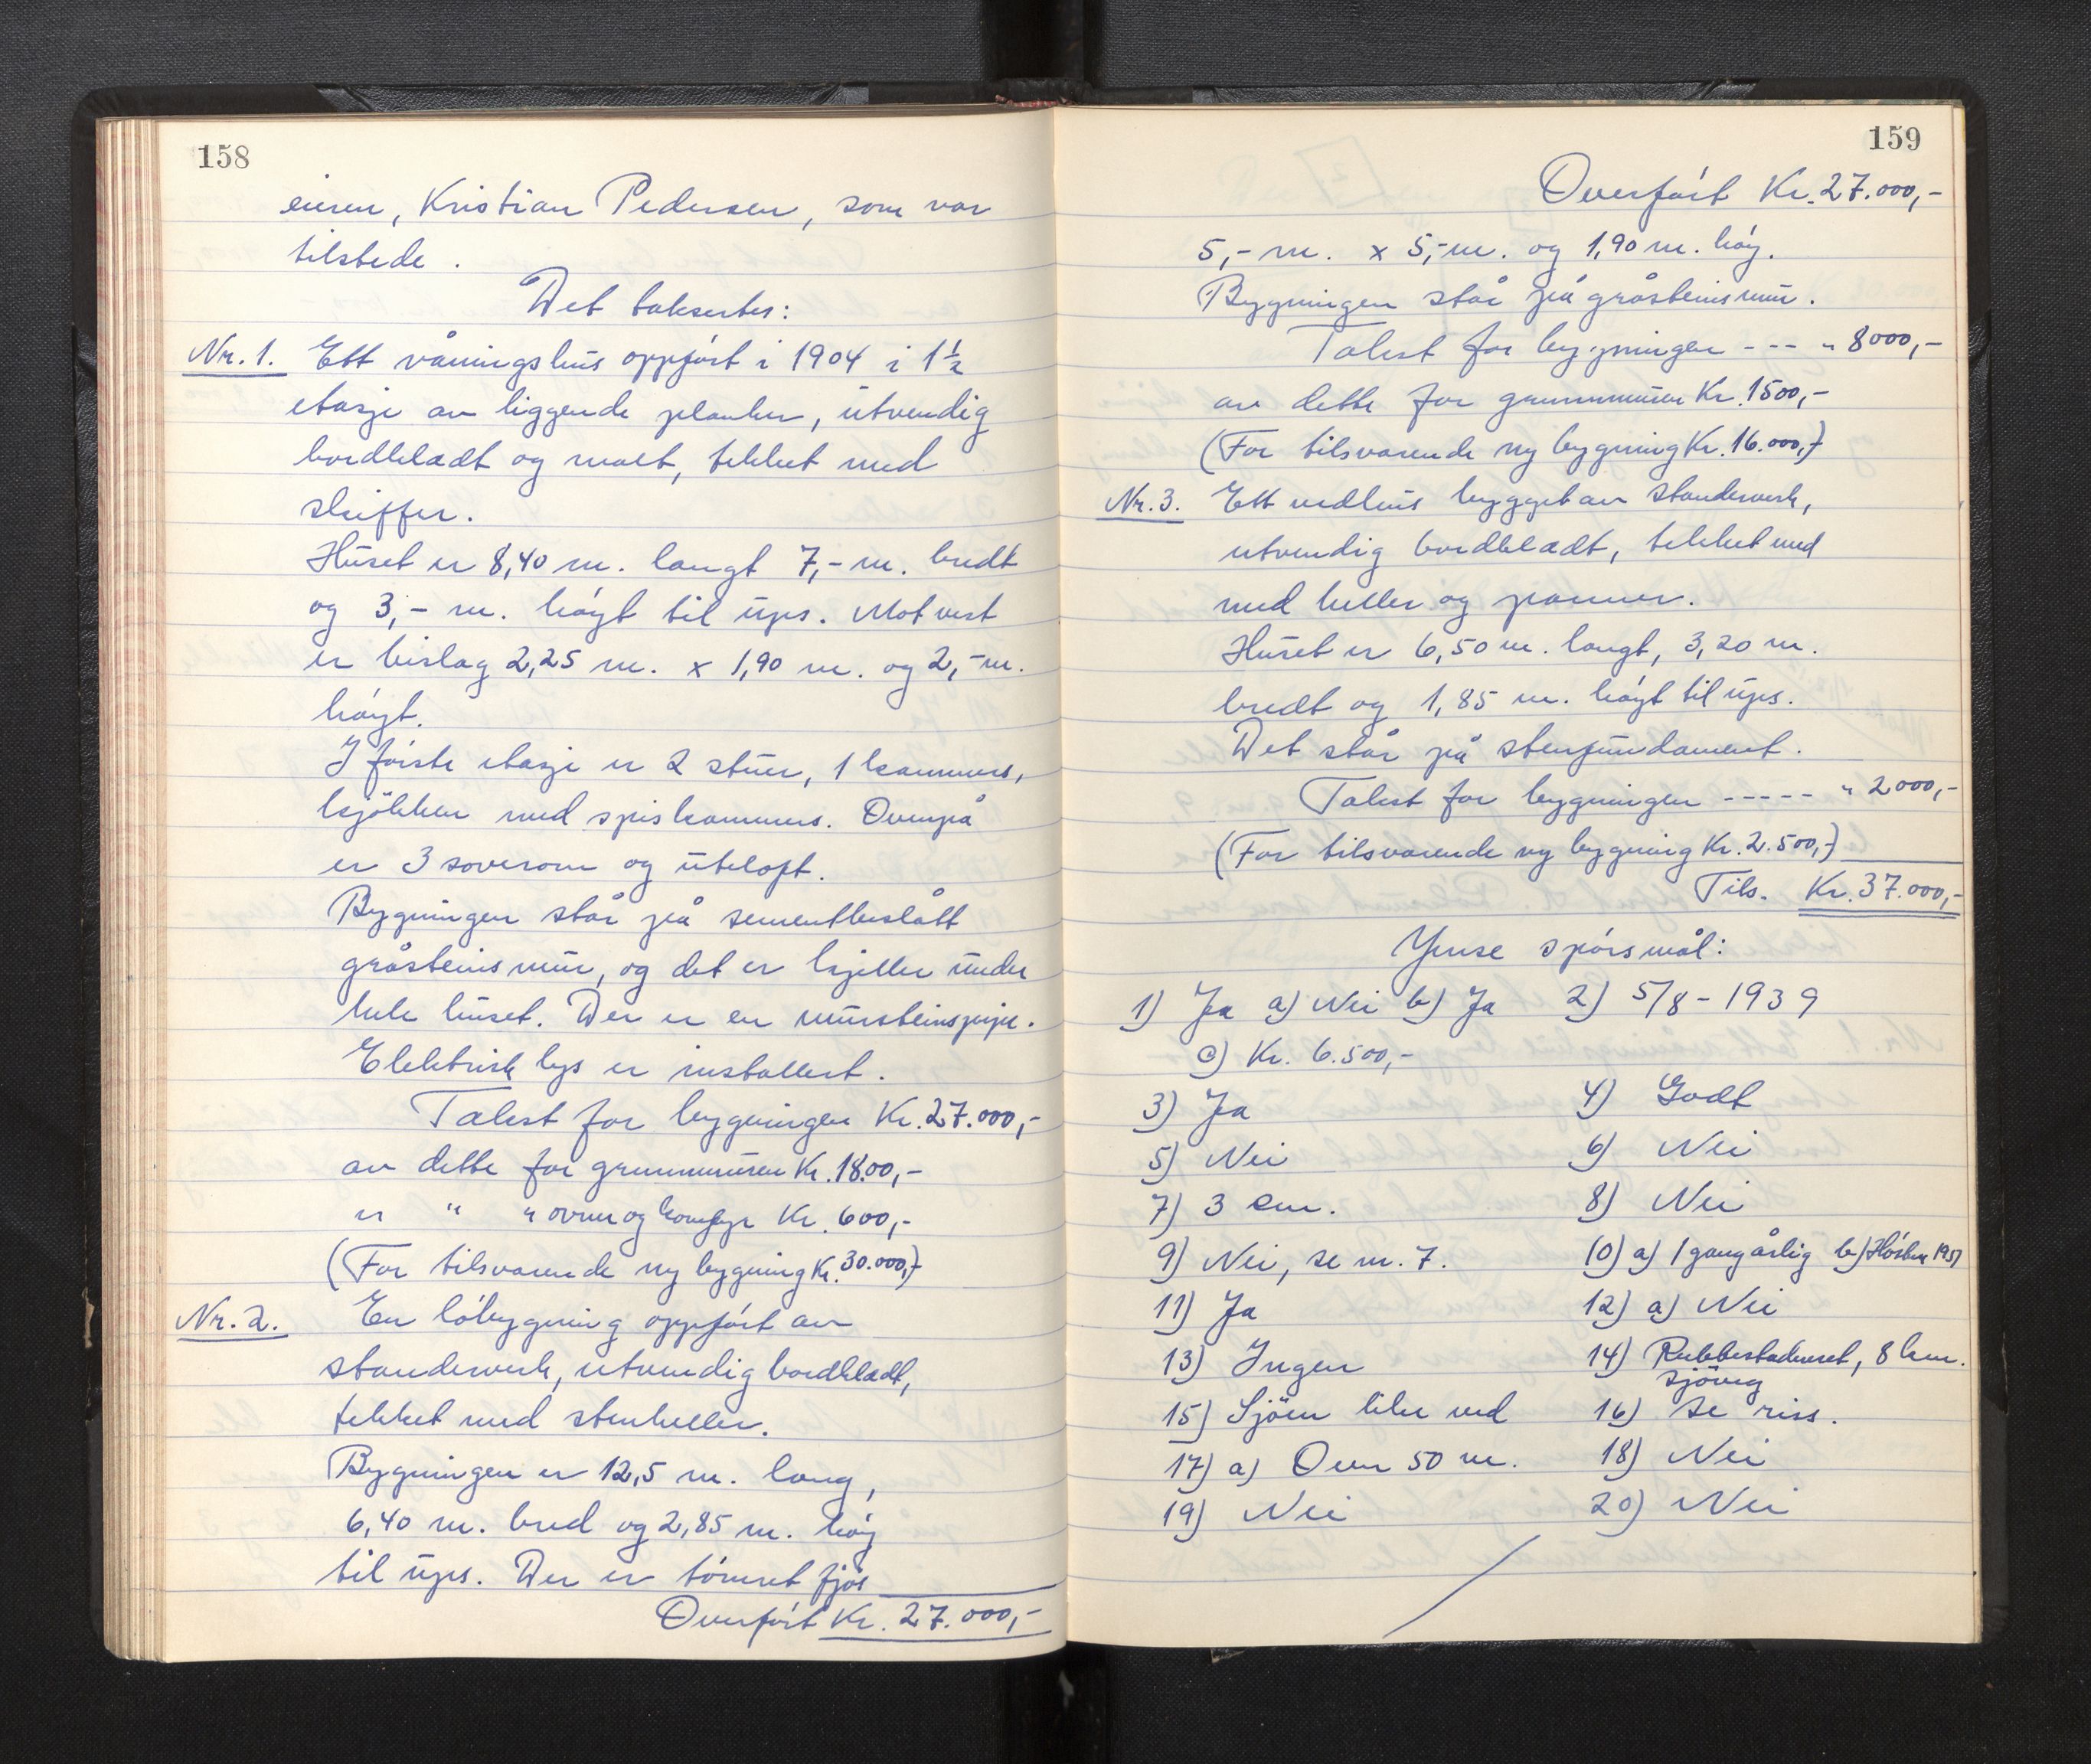 158
eieren, Kristian Pedersen, som var
tilstede.
Det taksertes:
Nr. 1. Ett våningshus oppført i 1904 i 1½
etasje av liggende planker, utvendig
bordkledt og malt, tekket med
skiffer.
Huset er 8,40 m. langt 7,- m. bredt
og 3,- m. høyt til ups. Mot vest
er bislag 2,25 m. x 1,90 m. og 2,- m.
høyt.
I første etasje er 2 stuer, 1 kammers,
kjøkken med spiskammers. Ovenpå
er 3 soverom og uteloft.
Bygningen står på sementbeslått
gråsteinsmur, og det er kjeller under
hele huset. Der er en mursteinspipe.
Elektrisk lys er installert.
Takst for bygningen Kr. 27.000,-
av dette for grunnmuren Kr. 1800,-
" " " ovner og komfyr Kr. 600,-
(For tilsvarende ny bygning Kr. 30.000,-)
Nr. 2. En løbygning oppført av
standerverk, utvendig bordkledt,
tekket med stenheller.
Bygningen er 12,5 m. lang,
6,40 m. bred og 2,85 m. høy
til ups. Der er tømret fjøs
Overført Kr. 27.000,-
159
Overført Kr. 27.000,-
5,- m. x 5,- m. og 1,90 m. høy.
Bygningen står på gråsteinsmur.
Takst for bygningen --- " 8000,-
av dette for grunnmuren Kr. 1500,-
(For tilsvarende ny bygning Kr. 16.000,-)
Nr. 3. Ett vedhus bygget av standerverk,
utvendig bordkledt, tekket med
med heller og panner.
Huset er 6,50 m. langt, 3,20 m.
bredt og 1,85 m. høyt til ups.
Det står på stenfundament.
Takst for bygningen ----- " 2000,-
(For tilsvarende ny bygning Kr. 2.500,-)
Tils. Kr. 37.000,-
Ymse spørsmål:
1) Ja a) Nei b) Ja 2) 5/8-1939
c) Kr. 6.500,-
3) Ja 4) Godt
5) Nei 6) Nei
7) 3 cm. 8) Nei
9) Nei, se nr. 7. 10) a) 1 gang årlig b) Høsten 1951
11) Ja 12) a) Nei
13) Ingen 14) Rubbestadneset, 8 km.
sjøveg
15) Sjøen like ved 16) Se riss.
17) a) Over 50 m. 18) Nei
19) Nei 20) Nei